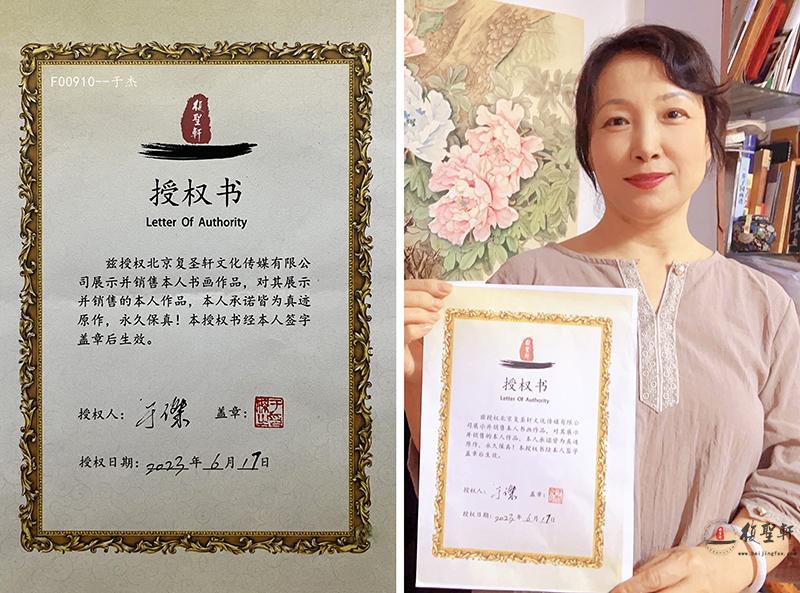 F00910--于杰
復聖軒
授权书
Letter Of Authority
兹授权北京复圣轩文化传媒有限公
司展示并销售本人书画作品，对其展示
并销售的本人作品，本人承诺皆为真迹
原作，永久保真！本授权书经本人签字
盖章后生效。
授权人：于傑 盖章：
授权日期：2023年6月17日
復聖軒
授权书
Letter Of Authority
兹授权北京复圣轩文化传媒有限公
司展示并销售本人书画作品，对其展示
并销售的本人作品，本人承诺皆为真迹
原作，永久保真！本授权书经本人签字
盖章后生效。
授权人：于傑 盖章：
授权日期：2023年6月17日
復聖軒
www.beijingfsx.com